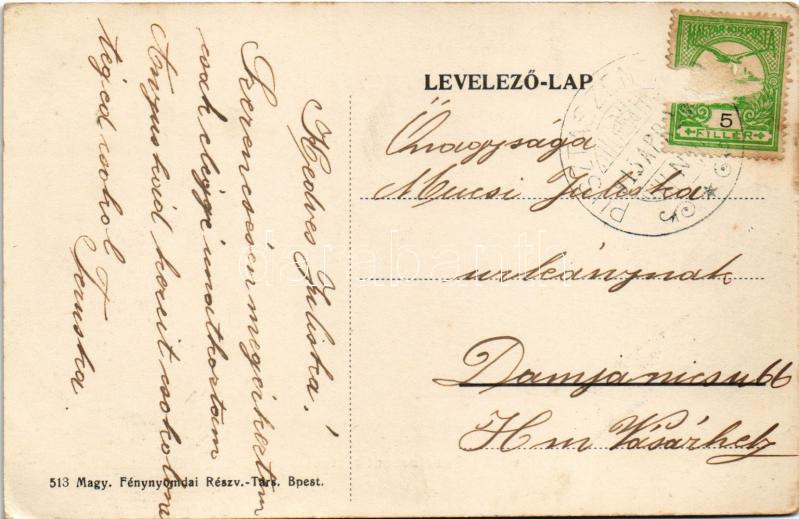 LEVELEZŐ-LAP
MAGYAR KIR. POSTA
5
FILLÉR
Önagysága
Mucsi Juliska
urleánynak
Damjanicsu 66
Hm Vásárhely
Kedves Juliska!
Szerencsésen megérkeztem
csak eléggé unatkoztam
Anyuskád kezeit csokolom
téged csokol
Teruska
513 Magy. Fénynyomdai Részv.-Társ. Bpest.
darabanth